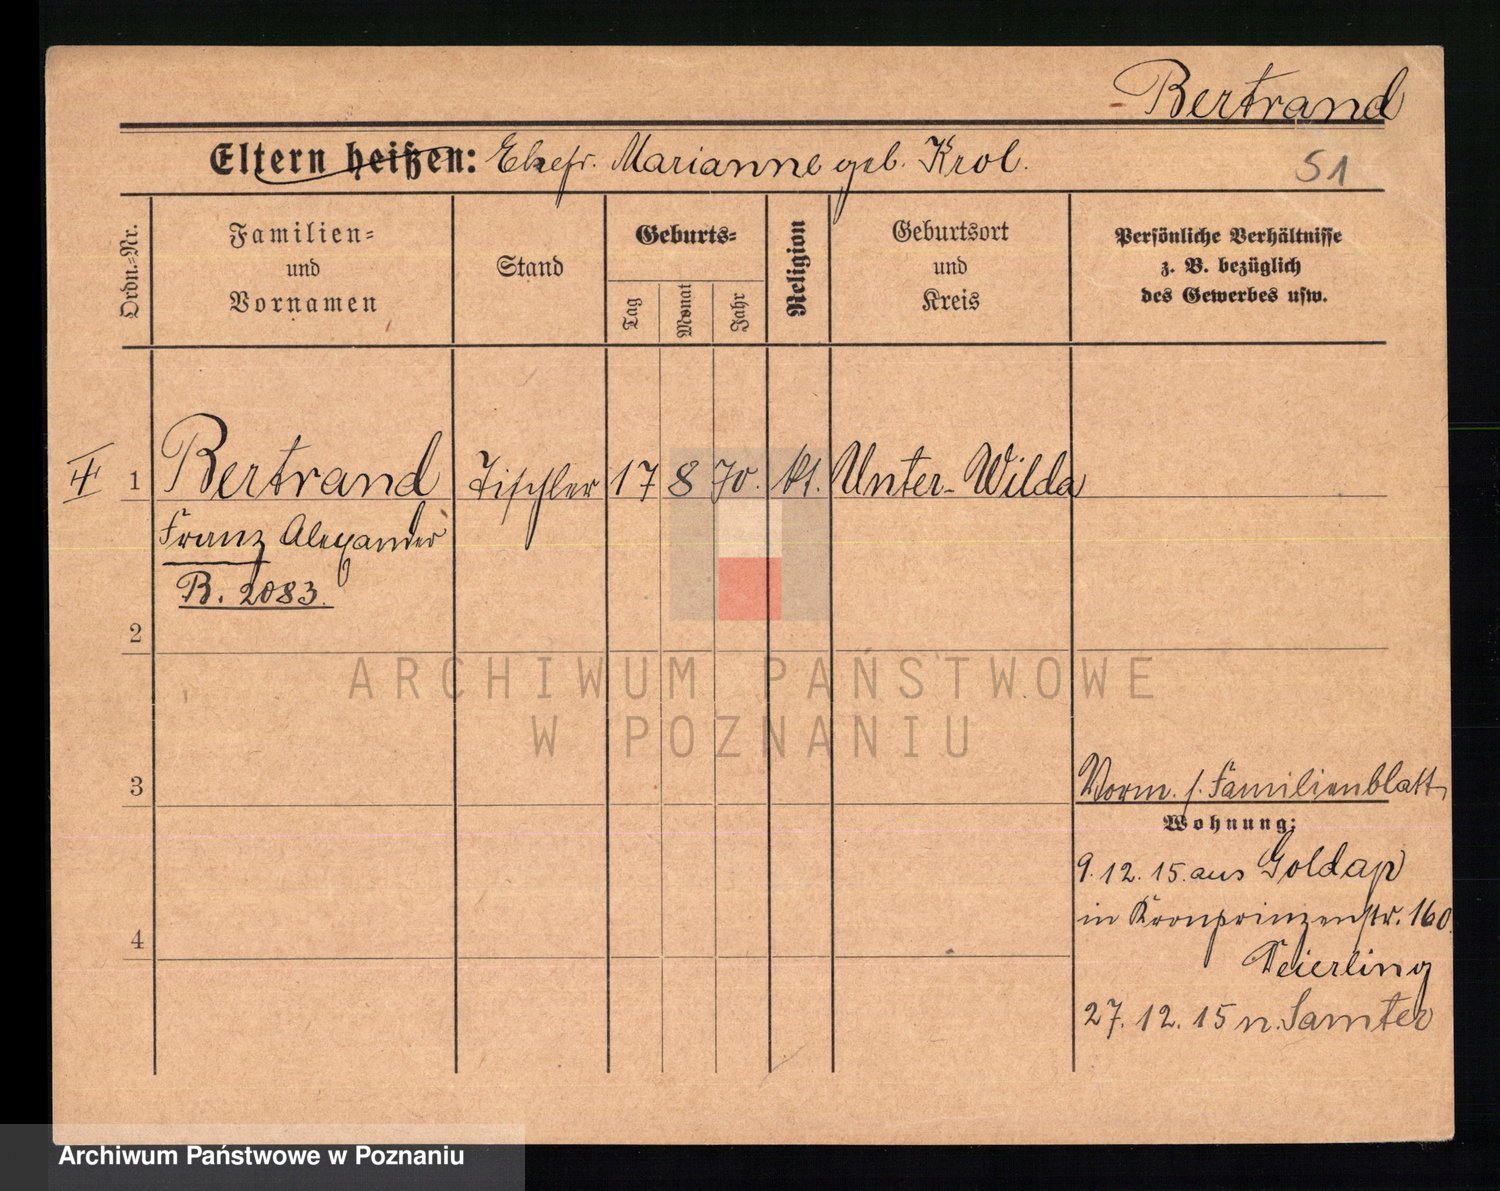 Bertrand
Eltern heißen: Ehefr. Marianne geb. Krol.
51
Ordn.=Nr.
Familien=
und
Vornamen
Stand
Geburts=
Tag
Monat
Jahr
Religion
Geburtsort
und
Kreis
Persönliche Verhältnisse
z. B. bezüglich
des Gewerbes usw.
1 Bertrand Tischler 17 8 70. kt. Unter-Wilda
Franz Alexander
B. 2083.
2
ARCHIWUM PAŃSTWOWE
W POZNANIU
3
Vorm. s. Familienblatt
Wohnung:
9.12.15. aus Goldap
in Kronprinzenstr. 160
4
27.12.15 n. Samter
Archiwum Państwowe w Poznaniu